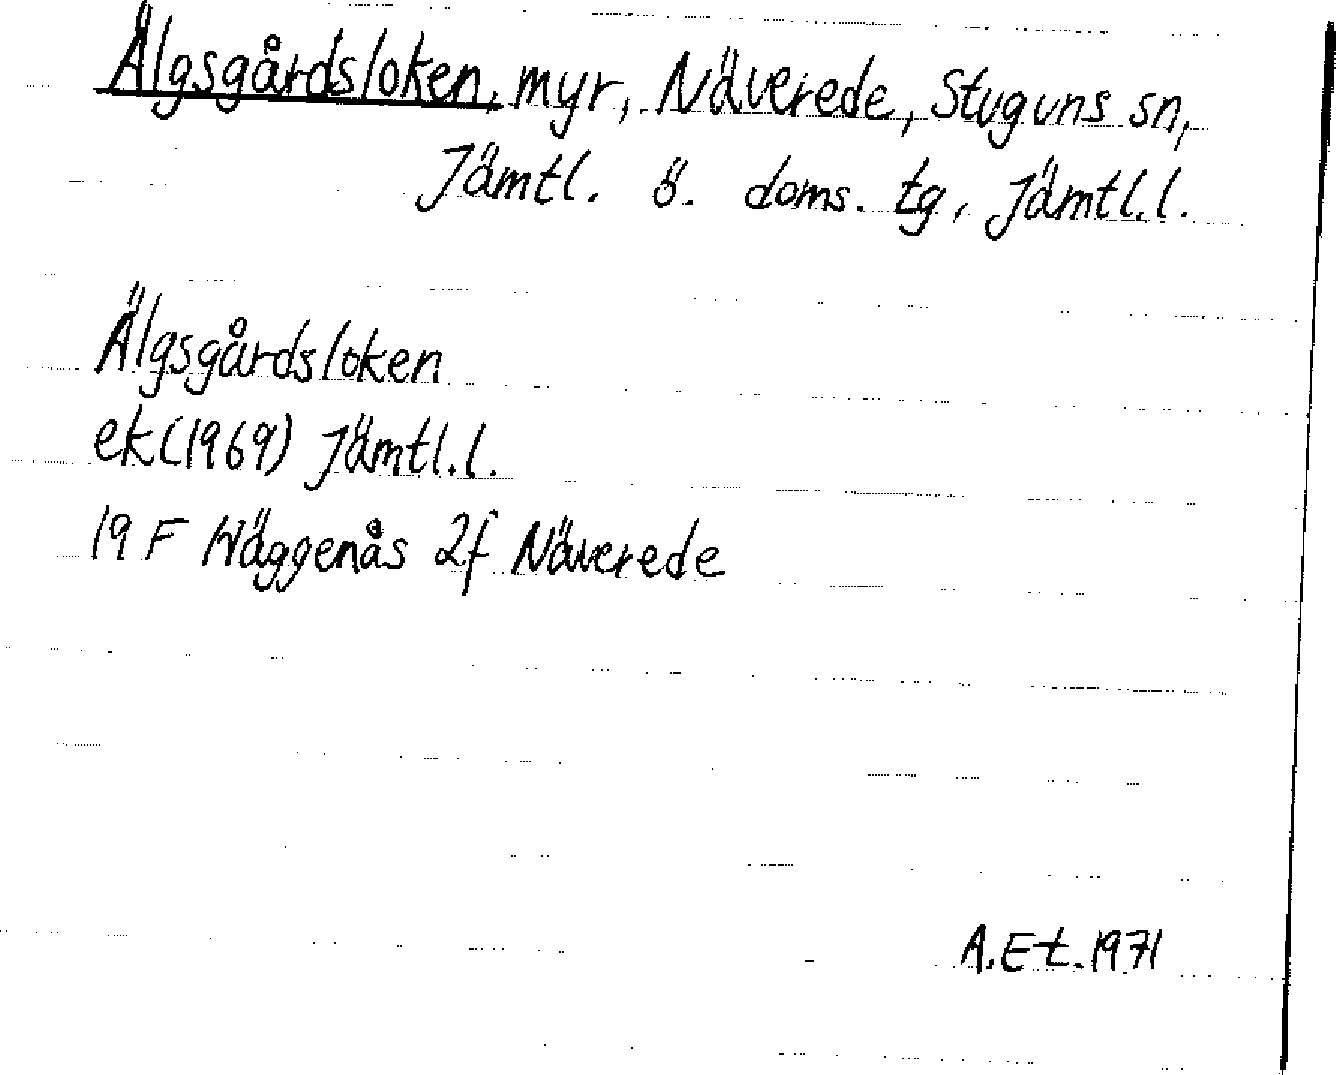 Älgsgårdsloken, myr, Näverede, Stuguns sn,
Jämtl. ö. doms. tg, Jämtl.l.
Älgsgårdsloken
ek(1969) Jämtl.l.
19 F Häggenås 2f Näverede
A.Et.1971